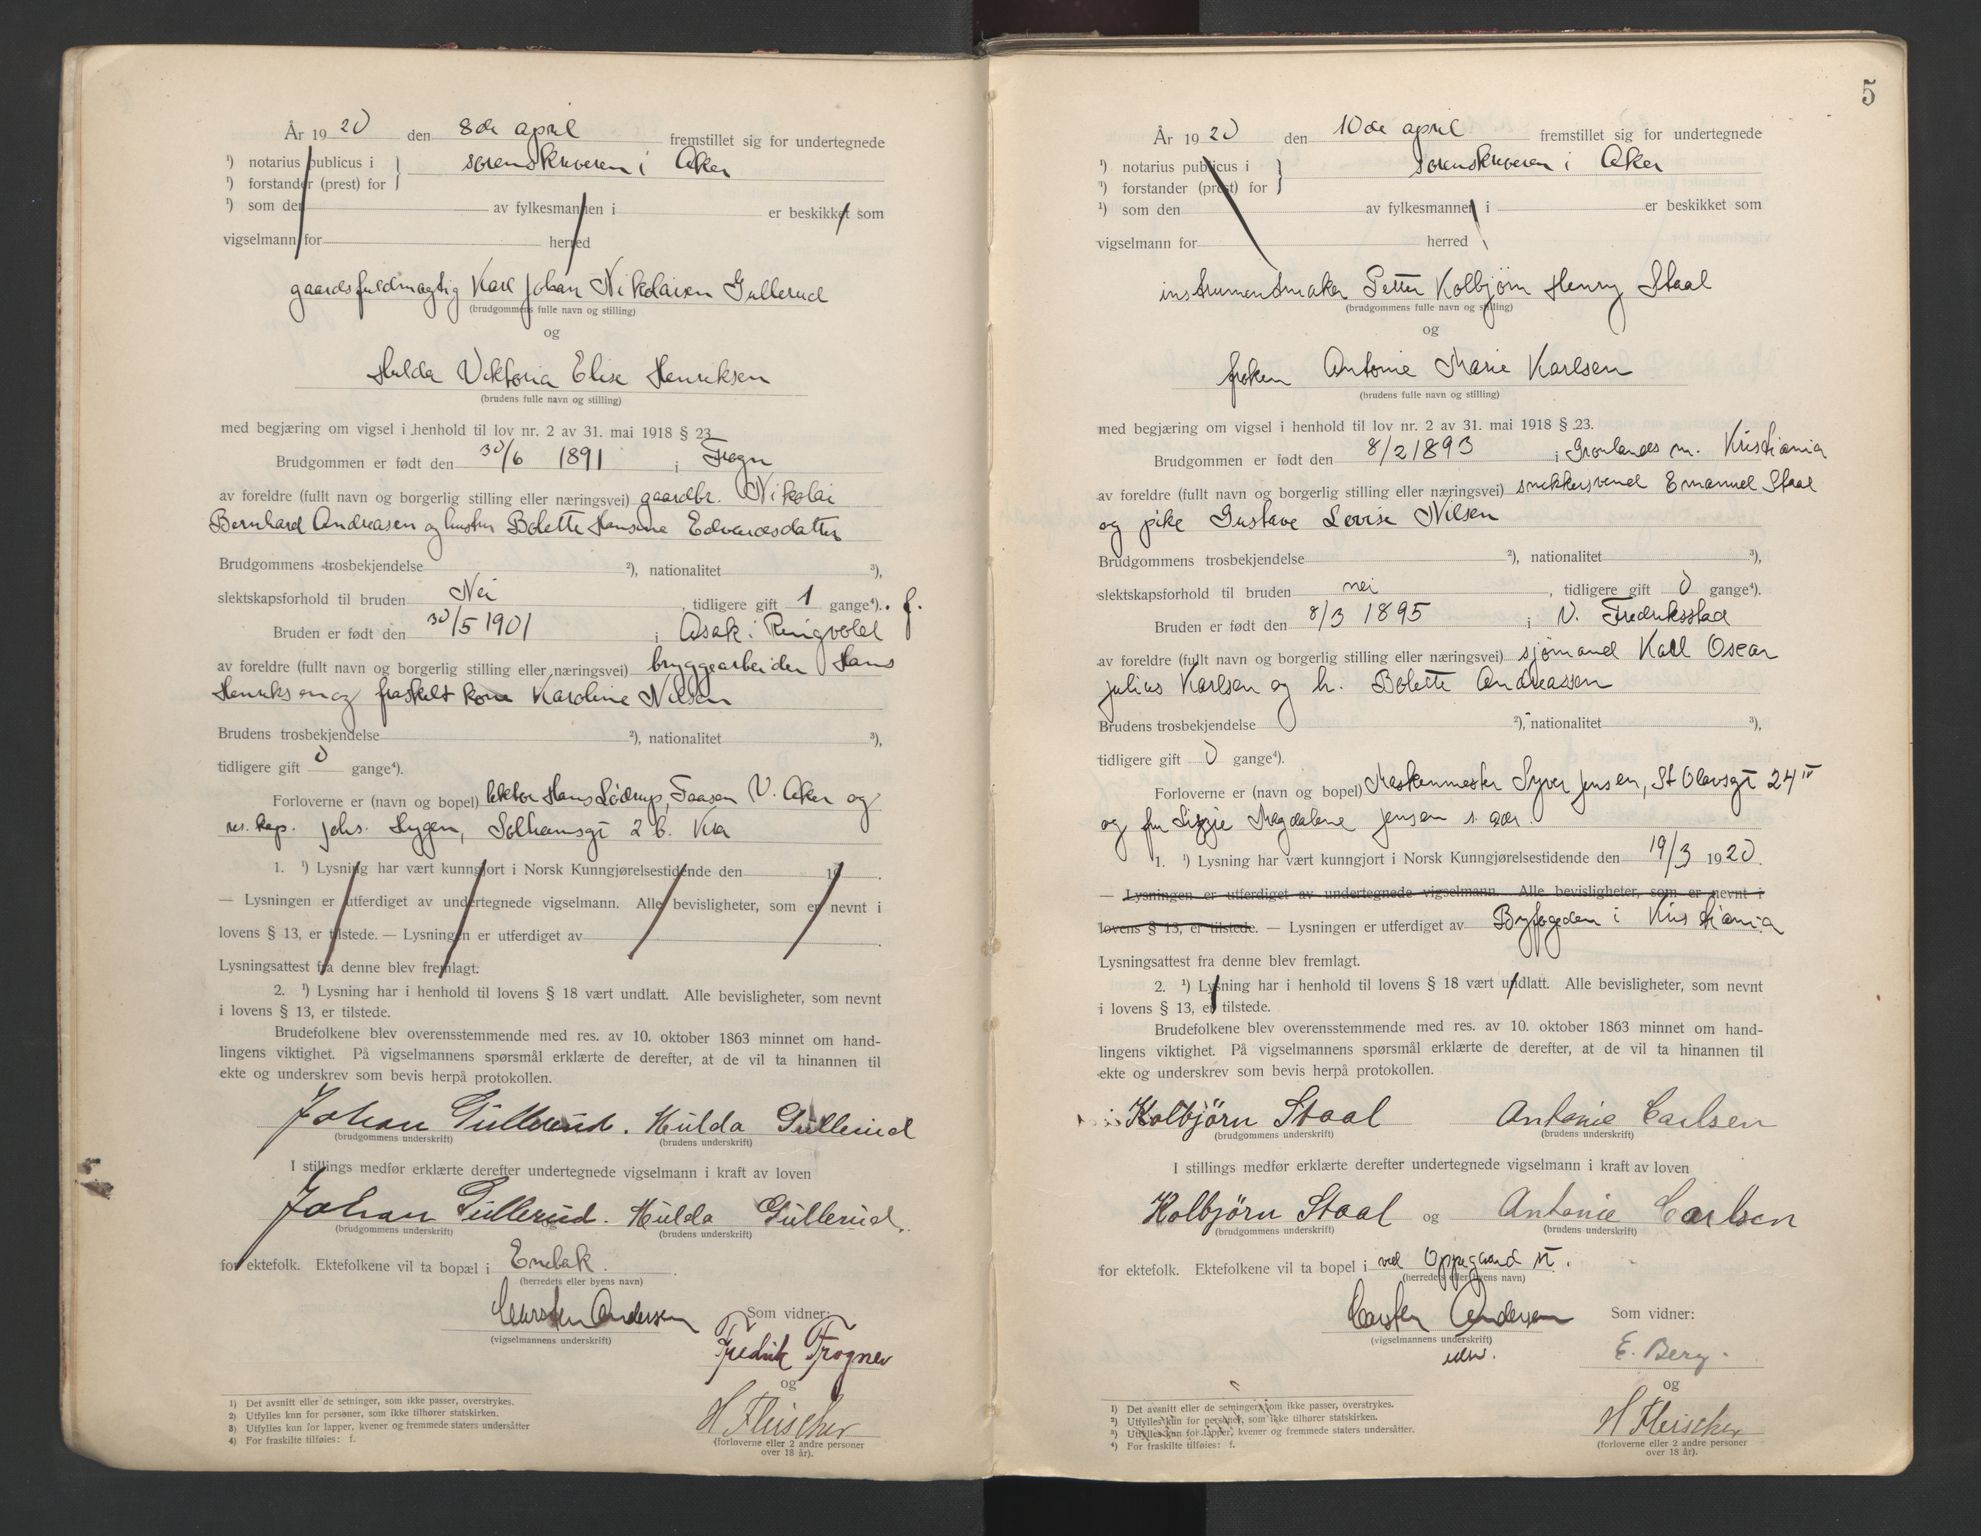 År 1920 den 8de april fremstillet sig for undertegnede
¹) notarius publicus i } sorenskriveren i Aker
¹) forstander (prest) for
¹) som den av fylkesmannen i er beskikket som
vigselmann for herred
gaardsfuldmægtig Karl Johan Nikolaisen Gullerud
(brudgommens fulle navn og stilling)
og
Hulda Viktoria Elise Henriksen
(brudens fulle navn og stilling)
med begjæring om vigsel i henhold til lov nr. 2 av 31. mai 1918 § 23.
Brudgommen er født den 30/6 1891 i Frogn
av foreldre (fullt navn og borgerlig stilling eller næringsvei) gaardbr. Nikolai
Bernhard Andreasen og hustru Bolette Hansine Edvardsdatter
Brudgommens trosbekjendelse ²), nationalitet ³),
slektskapsforhold til bruden Nei, tidligere gift 1 gange⁴). f.
Bruden er født den 30/5 1901 i Asak i Ringvold
av foreldre (fullt navn og borgerlig stilling eller næringsvei) bryggearbeider Hans
Henriksen og fraskelt kone Karoline Nilsen
Brudens trosbekjendelse ²), nationalitet ³),
tidligere gift 0 gange⁴).
Forloverne er (navn og bopel) lektor Hans Lødrup, Taasen V. Aker og
res. kap. Johs. Hygen, Solhamsgt 2 b. Kra
1. ¹) Lysning har vært kunngjort i Norsk Kunngjørelsestidende den 19 .
— Lysningen er utferdiget av undertegnede vigselmann. Alle bevisligheter, som er nevnt i
lovens § 13, er tilstede. — Lysningen er utferdiget av
Lysningsattest fra denne blev fremlagt.
2. ¹) Lysning har i henhold til lovens § 18 vært undlatt. Alle bevisligheter, som nevnt
i lovens § 13, er tilstede.
Brudefolkene blev overensstemmende med res. av 10. oktober 1863 minnet om hand-
lingens viktighet. På vigselmannens spørsmål erklærte de derefter, at de vil ta hinannen til
ekte og underskrev som bevis herpå protokollen.
Johan Gullerud. Hulda Gullerud
(brudgommens underskrift) (brudens underskrift)
I stillings medfør erklærte derefter undertegnede vigselmann i kraft av loven
Johan Gullerud. Hulda Gullerud.
(brudgommens underskrift) (brudens underskrift)
for ektefolk. Ektefolkene vil ta bopæl i Enebak.
(herredets eller byens navn)
Carsten Andersen Som vidner:
(vigselmannens underskrift)
Fredrik Frogner
og
H Fleischer
(forloverne eller 2 andre personer
over 18 år).
1) Det avsnitt eller de setninger, som ikke passer, overstrykes.
2) Utfylles kun for personer, som ikke tilhører statskirken.
3) Utfylles kun for lapper, kvener og fremmede staters undersåtter
4) For fraskilte tilføies: f.
5
År 1920 den 10de april fremstillet sig for undertegnede
¹) notarius publicus i } sorenskriveren i Aker
¹) forstander (prest) for
¹) som den av fylkesmannen i er beskikket som
vigselmann for herred
instrumentmaker Petter Kolbjørn Henry Staal
(brudgommens fulle navn og stilling)
og
frøken Antonie Marie Karlsen
(brudens fulle navn og stilling)
med begjæring om vigsel i henhold til lov nr. 2 av 31. mai 1918 § 23.
Brudgommen er født den 8/2 1893 i Grønlands m. Kristiania
av foreldre (fullt navn og borgerlig stilling eller næringsvei) snekkersvend Emanuel Staal
og pike Gustave Lovise Nilsen
Brudgommens trosbekjendelse ²), nationalitet ³),
slektskapsforhold til bruden nei, tidligere gift 0 gange⁴).
Bruden er født den 8/3 1895 i V. Fredriksstad
av foreldre (fullt navn og borgerlig stilling eller næringsvei) sjømand Karl Oscar
Julius Karlsen og h. Bolette Andreassen
Brudens trosbekjendelse ²), nationalitet ³),
tidligere gift 0 gange⁴).
Forloverne er (navn og bopel) Maskinmester Syver Jensen, St Olavsgt 24 IV
og fru Lizzie Magdalene Jensen s. adr.
1. ¹) Lysning har vært kunngjort i Norsk Kunngjørelsestidende den 19/3 1920.
— Lysningen er utferdiget av undertegnede vigselmann. Alle bevisligheter, som er nevnt i
lovens § 13, er tilstede. — Lysningen er utferdiget av Byfogden i Kristiania
Lysningsattest fra denne blev fremlagt.
2. ¹) Lysning har i henhold til lovens § 18 vært undlatt. Alle bevisligheter, som nevnt
i lovens § 13, er tilstede.
Brudefolkene blev overensstemmende med res. av 10. oktober 1863 minnet om hand-
lingens viktighet. På vigselmannens spørsmål erklærte de derefter, at de vil ta hinannen til
ekte og underskrev som bevis herpå protokollen.
Kolbjörn Staal Antonie Carlsen
(brudgommens underskrift) (brudens underskrift)
I stillings medfør erklærte derefter undertegnede vigselmann i kraft av loven
Kolbjörn Staal og Antonie Carlsen
(brudgommens underskrift) (brudens underskrift)
for ektefolk. Ektefolkene vil ta bopel i ved Oppegaard st.
(herredets eller byens navn)
Carsten Andersen Som vidner:
(vigselmannens underskrift)
E. Berg.
og
H Fleischer
(forloverne eller 2 andre personer
over 18 år).
¹) Det avsnitt eller de setninger, som ikke passer, overstrykes.
²) Utfylles kun for personer, som ikke tilhører statskirken.
³) Utfylles kun for lapper, kvener og fremmede staters undersåtter.
⁴) For fraskilte tilføies: f.